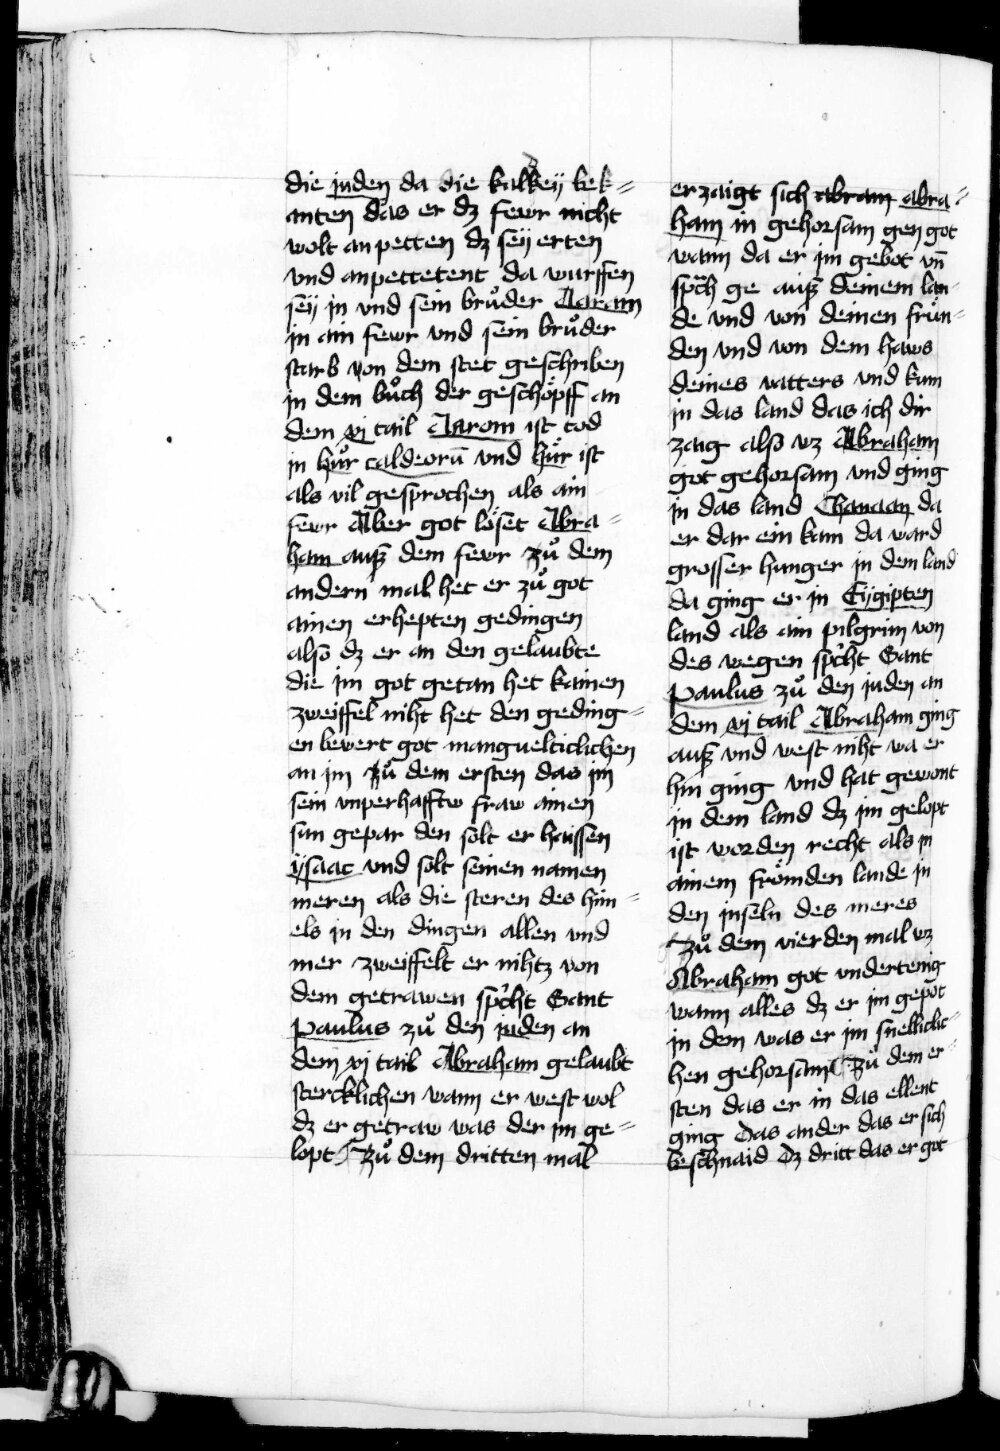 die juden da die kalkey bek=
anten das er dz fewr nicht
wolt anpetten dz sey erten
vnd anpettetent da wurffen
sey jn vnd sein bruͦder Aaram
jn ain fewr vnd sein bruͦder
starb von dem stet geschriben
jn dem buͦch der geschoͤpff an
dem vj tail Aarom ist tod
jn huͦr caldeorū vnd huͦr ist
als vil gesprochen als ain
fewr Aber got loͤset Abra=
ham auß dem fewr zuͦ dem
andern mal het er zuͦ got
ainen erhepten gedingen
also dz er an den gelaubte
die jm got getan het kainen
zweiffel niht het den geding=
en bewert got manguelticlichen
an jm zuͦ dem ersten das jm
sein vnperhafftw fraw ainen
sun gepar den solt er haissen
ysaac vnd solt seinen namen
meren als die steren des him=
els in den dingen allen vnd
mer zweiffelt er nihtz von
dem getrawen spͬcht Sant
Paulus zuͦ den juden an
dem vj tail Abraham gelaubt
stercklichen wann er west wol
dz er getraw was der jm ge=
lopt Zuͦ dem dritten mal
erzaigt sich abram abra=
ham in gehorsam gen got
wann da er jm gebot vn̄
spͬch ge auß deinem lan=
de vnd von deinen fruͤn=
den vnd von dem haws
deines vatters vnd kum
jn das land das ich dir
zaig also wz Abraham
got gehorsam vnd ging
jn das land Chanaan da
er dar ein kam da ward
grosser hunger jn dem land
da ging er jn Eygipten
land als ain pilgrim von
des wegen spͬcht Sant
Paulus zuͦ den juden an
dem vj tail Abraham ging
auß vnd west niht wa er
hin ging vnd hat gewont
jn dem land dz jm gelopt
ist worden recht als jn
ainem froͤmden lande jn
den jnseln des meres
Zuͦ dem vierden mal wz
Abraham got vndertenig
wann alles dz er jm gepot
jn dem was er jm snelliclic=
hen gehorsam Zuͦ dem er=
sten das er in das ellent
ging Das ander das er sich
beschnaid Dz dritt das er got